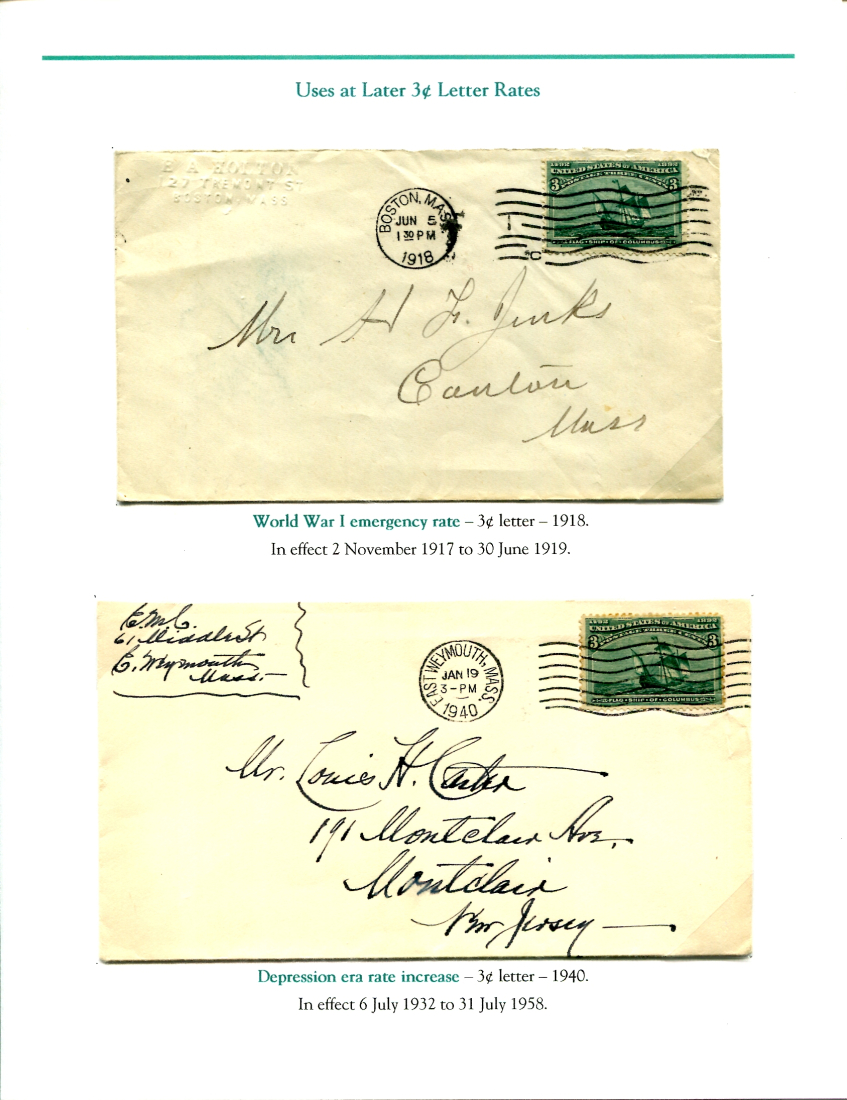 Uses at Later 3¢ Letter Rates
E A HOTTON
127 TREMONT ST
BOSTON, MASS
BOSTON, MASS.
JUN 5
1 30 PM
1918
1492 1892
UNITED STATES OF AMERICA
3 POSTAGE THREE CENTS 3
FLAG SHIP OF COLUMBUS
Mrs H F. Jenks
Canton
Mass
World War I emergency rate – 3¢ letter – 1918.
In effect 2 November 1917 to 30 June 1919.
E.M.C.
61 Middle St
E. Weymouth
Mass.
EAST WEYMOUTH, MASS.
JAN 19
3-PM
1940
1492 1892
UNITED STATES OF AMERICA
3 POSTAGE THREE CENTS 3
FLAG SHIP OF COLUMBUS
Mr. Louis H. Carter
191 Montclair Ave.
Montclair
New Jersey
Depression era rate increase – 3¢ letter – 1940.
In effect 6 July 1932 to 31 July 1958.